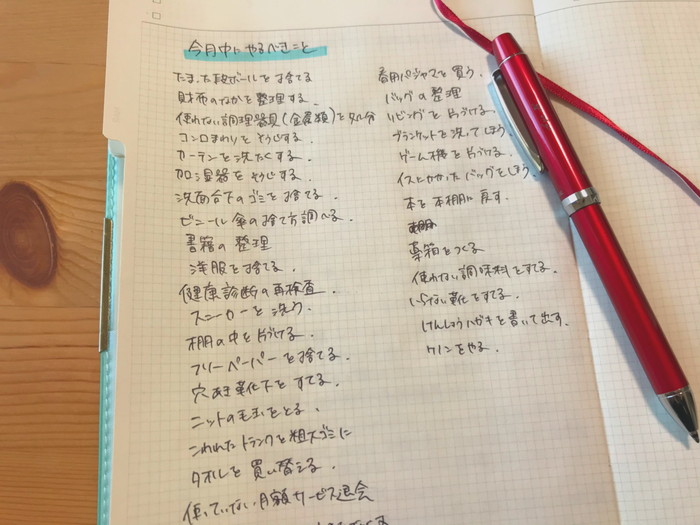 今月中にやるべきこと
たまった段ボールを捨てる
財布のなかを整理する.
使わない調理器具(金属類)を処分
コンロまわりをそうじする.
カーテンを洗たくする.
加湿器をそうじする.
洗面台下のゴミを捨てる.
ビニール傘の捨て方調べる.
書籍の整理
洋服を捨てる.
健康診断の再検査.
スニーカーを洗う
棚の中を片づける.
フリーペーパーを捨てる.
穴あき靴下をすてる.
ニットの毛玉をとる.
こわれたトランクを粗大ゴミに
タオルを買い替える.
使っていない月額サービス退会
春用パジャマを買う.
バッグの整理
リビングを片づける.
ブランケットを洗ってしまう.
ゲーム機を片づける.
イスにかかったバッグをしまう.
本を本棚に戻す.
薬箱をつくる
使わない調味料をすてる.
いらない靴をすてる.
けんしょうハガキを書いて出す.
ケノンをやる.